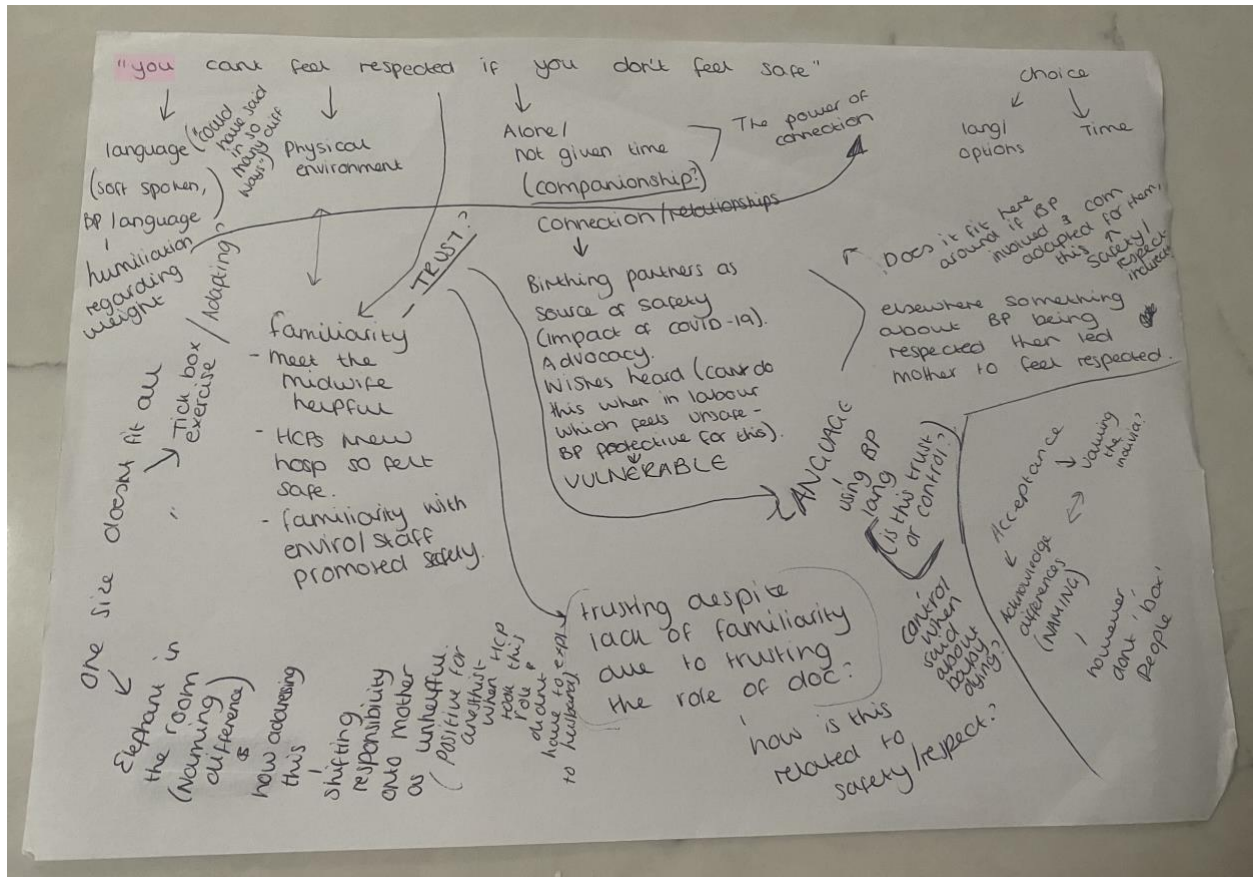 "you cant feel respected if you don't feel safe"
language
(soft spoken,
BP language
humiliation
regarding
weight
("could
have said
in so
many diff
ways"
Physical
environment
Alone/
not given time
(companionship?)
The power of
connection
choice
lang/
options
Time
connection/relationships
Birthing partners as
source of safety
(impact of COVID-19).
Advocacy.
Wishes heard (cant do
this when in labour
which feels unsafe -
BP protective for this).
VULNERABLE
Does it fit here
around if BP
involved & com
adapted for them,
this
safety/
respect
indirect
elsewhere something
about BP being
respected then led
mother to feel respected.
- TRUST?
familiarity
- meet the
midwife
helpful
- HCPs knew
hosp so felt
safe.
- familiarity with
enviro/staff
promoted safety.
one size doesnt fit all
Tick box / Adapting?
exercise
"
Elephant in
the room
(Naming
difference)
&
how addressing
this
shifting
responsibility
onto mother
as unhelpful.
(positive for
anesthist
when HCP
took this
role &
didnt
have to expl.
to husband)
trusting despite
lack of familiarity
due to trusting
the role of doc?
how is this
related to
safety/respect?
LANGUAGE
using BP
lang
(is this trust
or control?)
control
when
said
about
baby
dying?
Acceptance
valuing
the
individ?
Acknowledge
differences
(NAMING)
however
dont 'box'
people